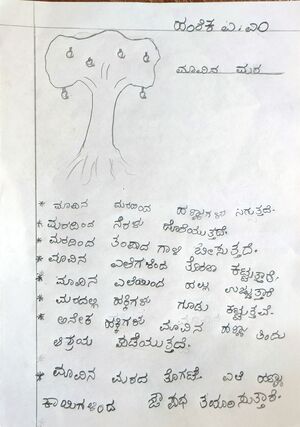 ಹಂಶಿಕ ಎ. ಎಂ
ಮಾವಿನ ಮರ
* ಮಾವಿನ ಮರದಿಂದ ಹಣ್ಣುಗಳು ಸಿಗುತ್ತದೆ.
* ಮರದಿಂದ ನೆರಳು ದೊರೆಯುತ್ತದೆ.
* ಮರದಿಂದ ತಂಪಾದ ಗಾಳಿ ಬೀಸುತ್ತದೆ.
* ಮಾವಿನ ಎಲೆಗಳಿಂದ ತೋರಣ ಕಟ್ಟುತ್ತಾರೆ.
* ಮಾವಿನ ಎಲೆಯಿಂದ ಹಲ್ಲು ಉಜ್ಜುತ್ತಾರೆ
* ಮರದಲ್ಲಿ ಹಕ್ಕಿಗಳು ಗೂಡು ಕಟ್ಟುತ್ತವೆ.
* ಅನೇಕ ಹಕ್ಕಿಗಳು ಮಾವಿನ ಹಣ್ಣು ತಿಂದು
ಆಶ್ರಯ ಪಡೆಯುತ್ತದೆ.
* ಮಾವಿನ ಮರದ ತೊಗಟೆ. ಎಲೆ ಹಣ್ಣು
ಕಾಯಿಗಳಿಂದ ಔಷಧ ತಯಾರಿಸುತ್ತಾರೆ.